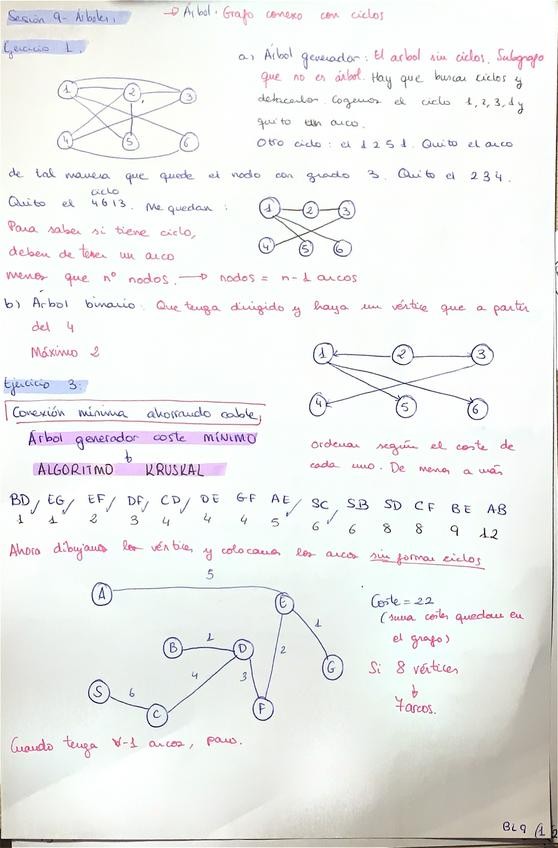 Sesión 9- Árboles:
→ Árbol. Grafo conexo con ciclos
Ejercicio 1.
a) Árbol generador: El arbol sin ciclos. Subgrafo
que no es árbol. Hay que buscar ciclos y
detectarlo. Cogemos el ciclo 1, 2, 3, 1 y
quito un arco.
Otro ciclo: el 1 2 5 1. Quito el arco
de tal manera que quede el nodo con grado 3. Quito el 2 3 4.
ciclo
Quito el 4 6 1 3. Me quedan:
Para saber si tiene ciclo,
deben de tener un arco
menos que nº nodos. → nodos = n-1 arcos
1 2 3
4 5 6
1 2 3
4 5 6
b) Árbol binario: Que tenga dirigido y haya un vértice que a partir
del 4
Máximo 2
1 2 3
4 5 6
Ejercicio 3:
Conexión mínima ahorrando cable,
Árbol generador coste MÍNIMO
ALGORITMO KRUSKAL
ordenar según el coste de
cada uno. De menos a más
BD EG EF DF CD DE GF AE SC SB SD CF BE AB
1 1 2 3 4 4 4 5 6 6 8 8 9 12
Ahora dibujamos los vértices y colocamos los arcos sin formar ciclos
5
A E
1
B 1 D 2 G
4 3
S 6 C F
Coste = 22
(suma costes quedan en
el grafo)
Si 8 vértices
↓
7 arcos.
Cuando tenga v-1 arcos, paro.
BL9 (1